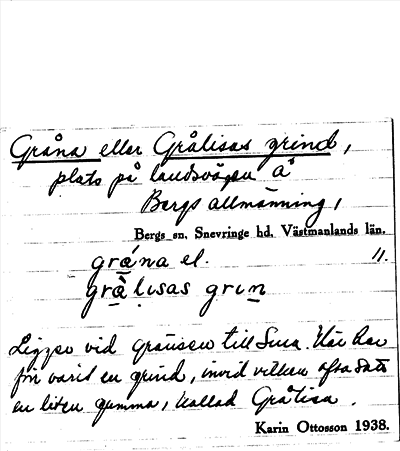 Gråna eller Grålisas grind,
plats på landsvägen å
Bergs allmänning,
Bergs sn. Snevringe hd. Västmanlands län.
grǻna el. 11.
grå̀lisas grin
Ligger vid gränsen till Sura. Här har
förr varit en grind, invid vilken ofta satt
en liten gumma, kallad Grålisa.
Karin Ottosson 1938.